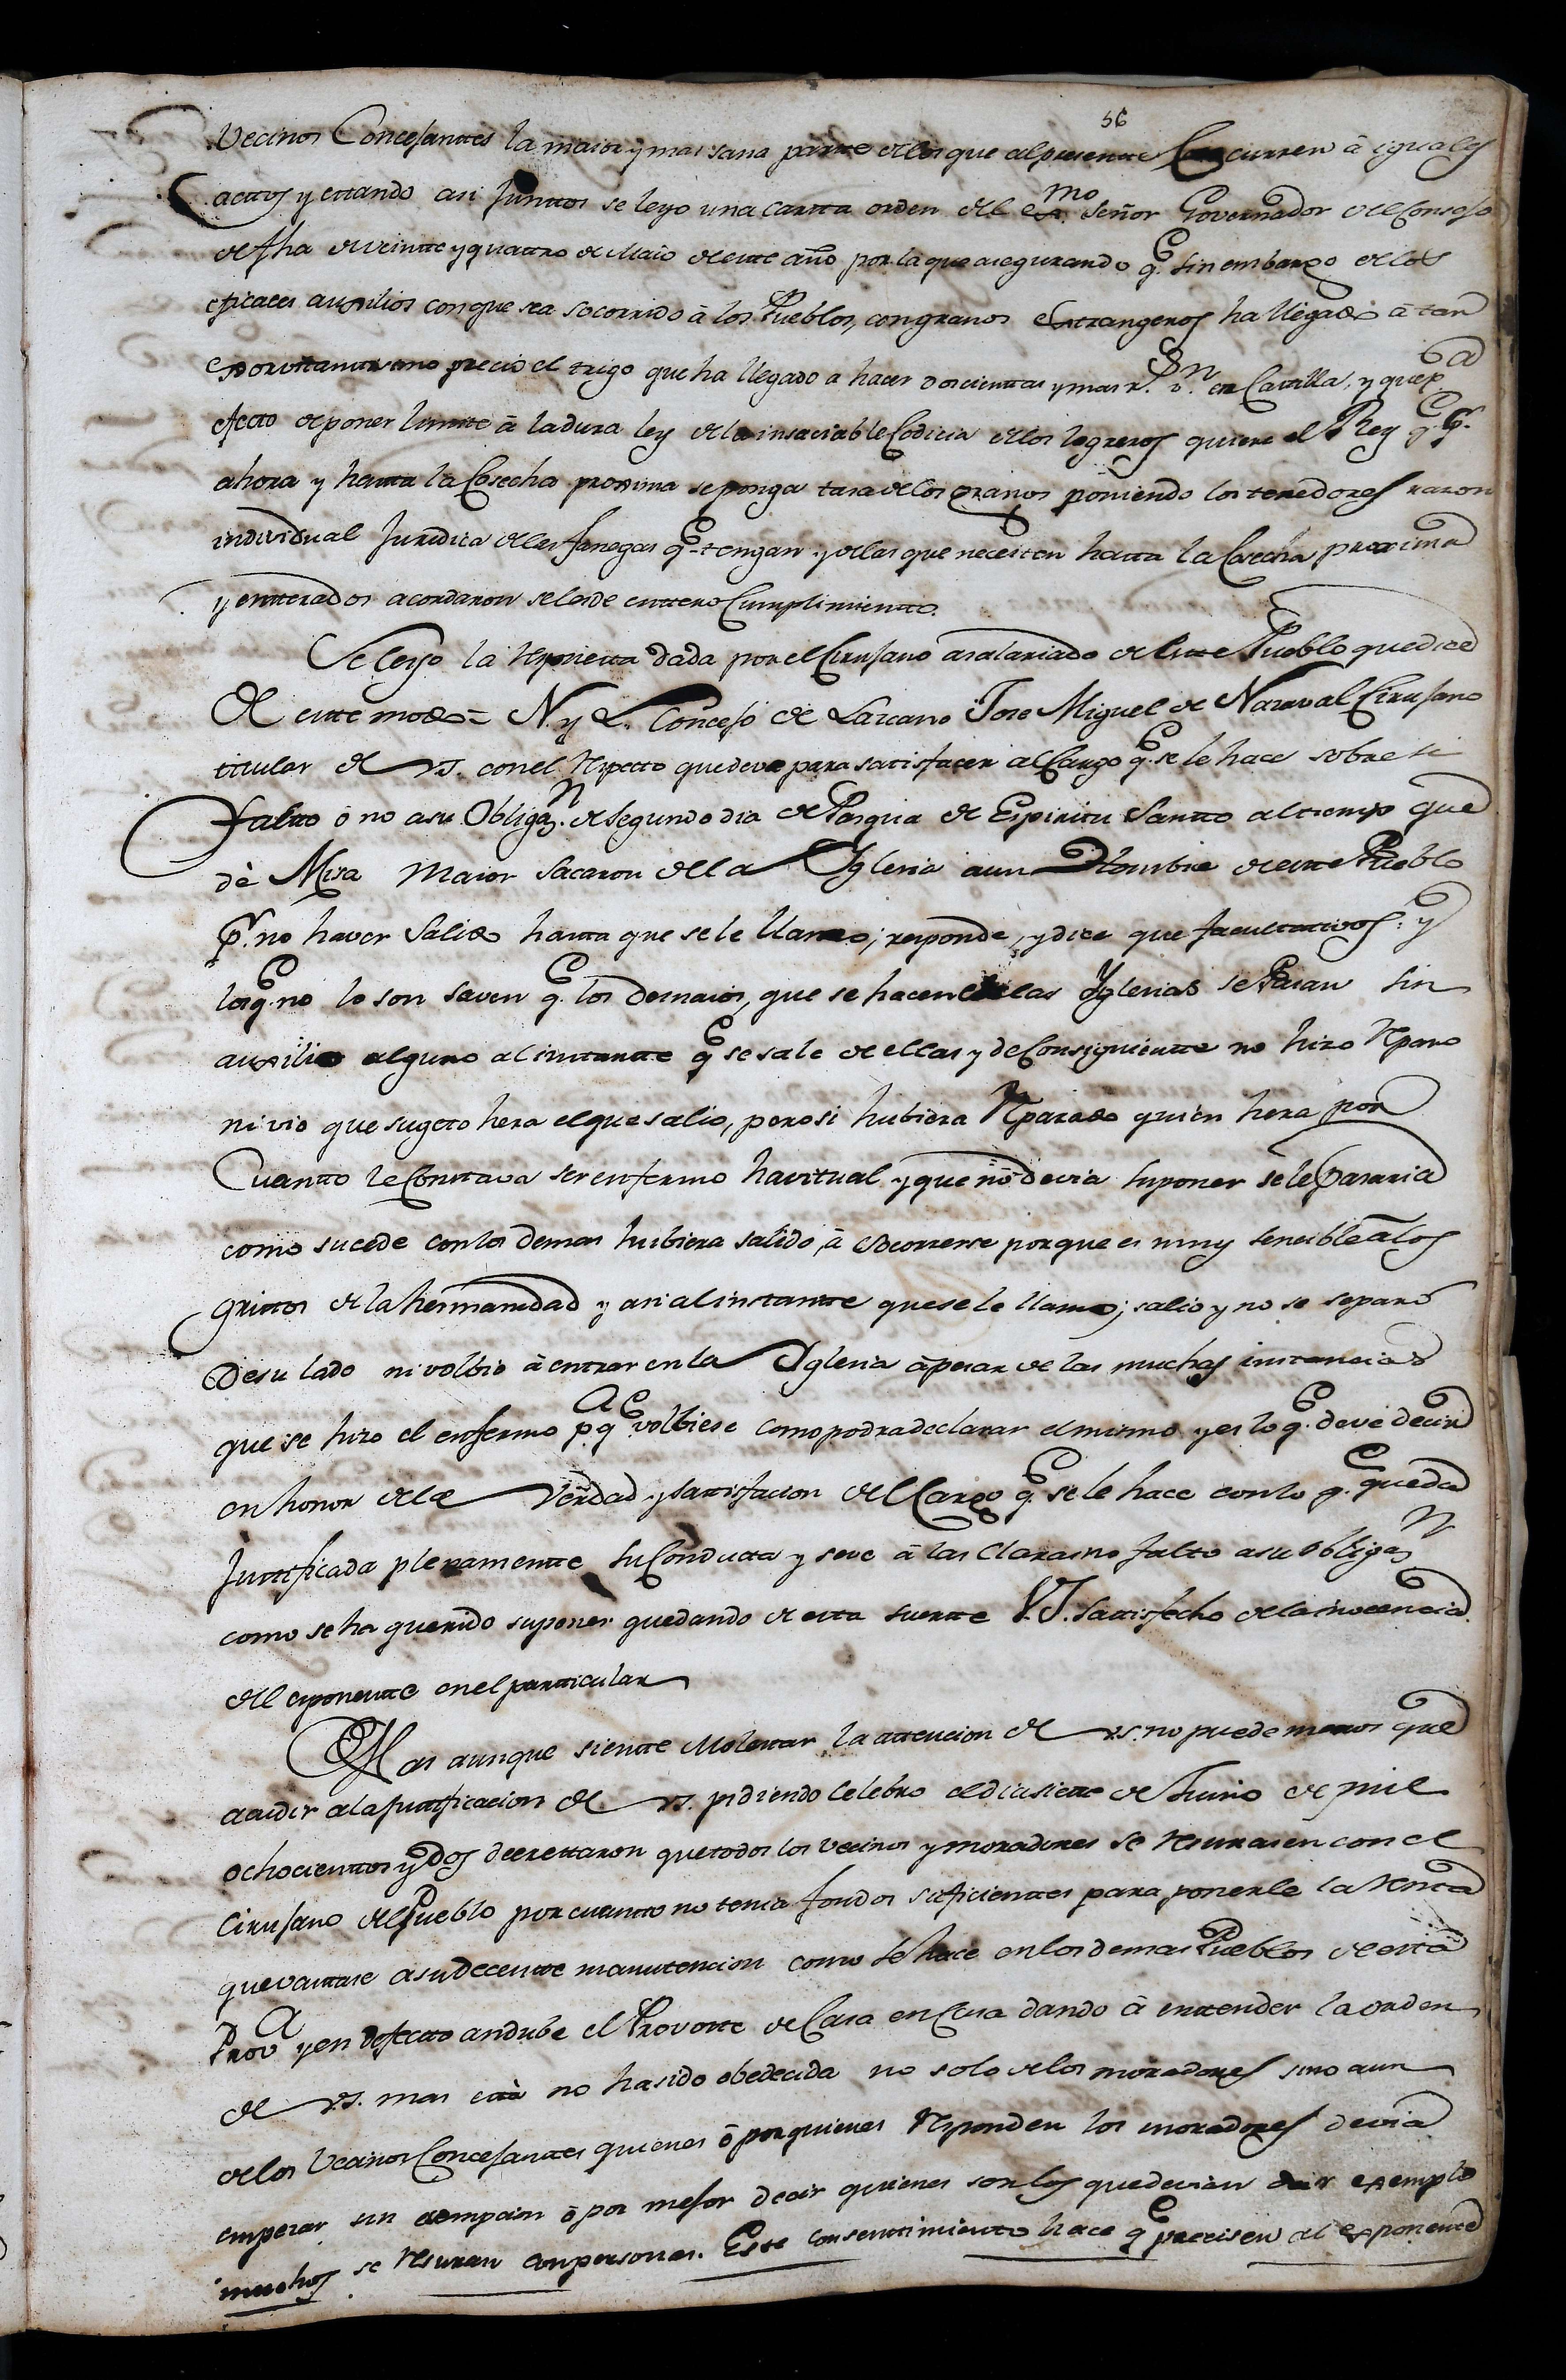 56
Vecinos Concejanttes la maior y mas sana partte de los que al presentte Concurren â iguales
acttos y estando asi Junttos se leyo una cartta orden del exmo Señor Governador del Consejo
de fha de veintte y quattro de Maio de este año por la que asegurando q.e sin embargo de los
eficaces auxilios con que sea socorrido â los Pueblos, con granos extrangeros ha llegado â tan
exorvitantisimo precio el trigo que ha llegado a hacer doscientas y mas r.s v.n en Castilla, y que p.a
efecto de poner limite â la dura ley de la insaciable Codicia de los logreros quiere el Rey q.e p.r
ahora y hasta la Cosecha proxima se ponga tasa de los granos poniendo los tenedores razon
individual Juridica de las fanegas q.e tengan y de las que necesiten hasta la Cosecha proxima
y entterados acordaron se le de enttero Cumplimientto.
Se leyo la Respuesta dada por el Cirujano asalariado de este Pueblo que dice
De este modo = N. y L. Concejo de Lazcano Jose Miguel de Narval Cirujano
titular de VS. con el Respetto que deve para satisfacer al Cargo q.e se le hace sobre si
falto ô no a su Obligaz.n el segundo dia de Pasqua de Espiritu Santto al tiempo que
dè Misa Maior sacaron de la Iglesia a un Hombre de este Pueblo
p.r no haver Salido hasta que se le llamo; responde, y dice que facultativos: y
los q.e no lo son saven q.e los desmaios, que se hacen en las Yglesias se Pasan sin
auxilio alguno al instante q.e se sale de ellas y de Consiguiente no hizo Reparo
ni vio que sugeto hera el que salio, pero si hubiera Reparado quien hera por
Cuantto le Constava ser enfermo havitual y que no devia suponer se le pasaria
como sucede con los demas hubiera salido, â socorrerse porque es muy sencible â los
grittos de la hermanidad y asi al instantte que se le llamo; salio y no se separó
De su lado ni volbio â entrar en la Iglesia âpesar de las muchas instancias
que se hizo el enfermo p.a q.e volbiese como podra declarar el mismo y es lo q.e deve decir
en honor de la Verdad y sattisfacion del Cargo q.e se le hace con lo q.e queda
Justtificada plenamentte su Conducta y se ve â las Claras no falto a su Obligaz.n
como se ha querido suponer quedando de esta suertte V.S. sattisfecho de la inocencia
del exponentte en el particular
Mas aunque sientte Molestar la attencion de VS. no puede menos que
acudir a la Justtificacion de VS. pidiendo Celebro el dia siette de Junio de mil
ochocienttos y dos decrettaron que todos los vecinos y moradores se Resurasen con el
Cirujano del Pueblo por cuantto no tenia fondos suficienttes para ponerle la Renta
que vastase a su decentte manutencion como se hace en los demas Pueblos de esta
Prov.a y en defecto andube el Prevoste de Casa en Casa dando â enttender la orden
de VS. mas esta no ha sido obedecida no solo de los moradores sino aun
de los Vecinos Concejanttes quienes ô por quienes Responden los moradores devia
empezar sin exempcion ô por mejor decir quienes son los que devian dar exemplo
muchos se Resuran con personas. Este consenttimientto hace q.e precisen al exponente